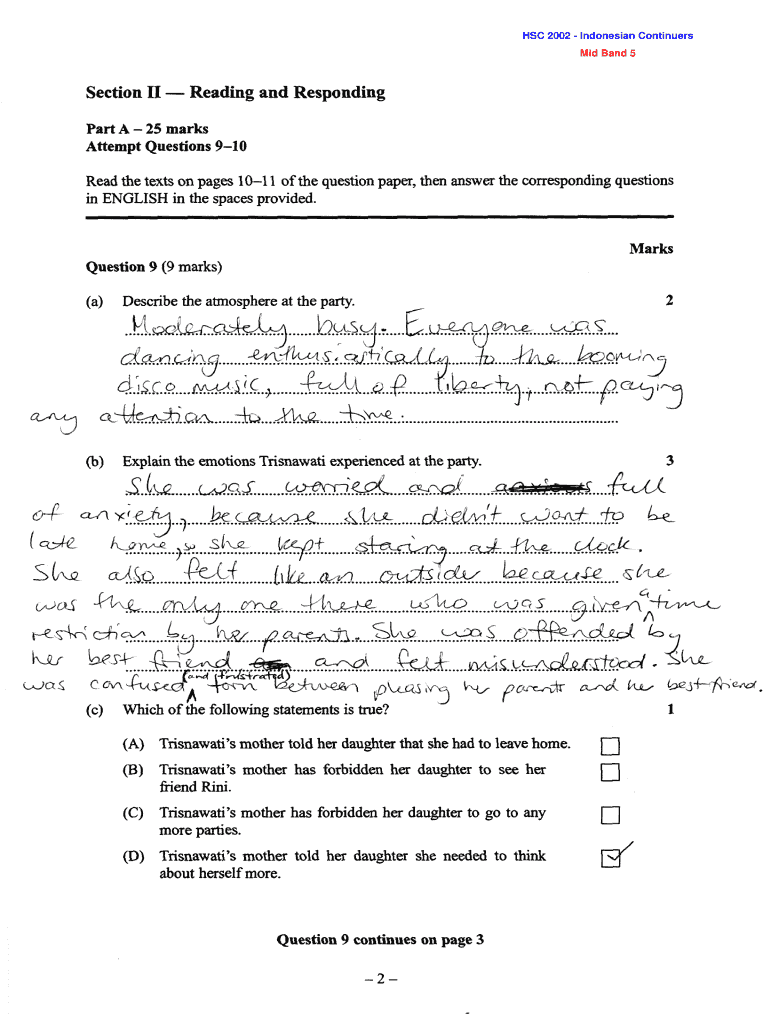 HSC 2002 - Indonesian Continuers
Mid Band 5
Section II — Reading and Responding
Part A – 25 marks
Attempt Questions 9–10
Read the texts on pages 10–11 of the question paper, then answer the corresponding questions
in ENGLISH in the spaces provided.
Marks
Question 9 (9 marks)
(a) Describe the atmosphere at the party. 2
Moderately busy. Everyone was
dancing enthusiastically to the booming
disco music, full of liberty, not paying
any attention to the time.
(b) Explain the emotions Trisnawati experienced at the party. 3
She was worried and full
of anxiety, because she didn't want to be
late home, so she kept staring at the clock.
She also felt like an outside because she
was the only one there who was given a time
restriction by her parents. She was offended by
her best friend and felt misunderstood. She
was confused (and frustrated) torn between pleasing her parents and her best friend.
(c) Which of the following statements is true? 1
(A) Trisnawati's mother told her daughter that she had to leave home.
(B) Trisnawati's mother has forbidden her daughter to see her
friend Rini.
(C) Trisnawati's mother has forbidden her daughter to go to any
more parties.
(D) Trisnawati's mother told her daughter she needed to think
about herself more.
Question 9 continues on page 3
– 2 –